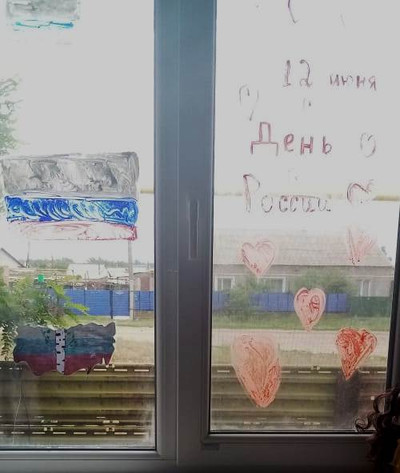 12 июня
День
России